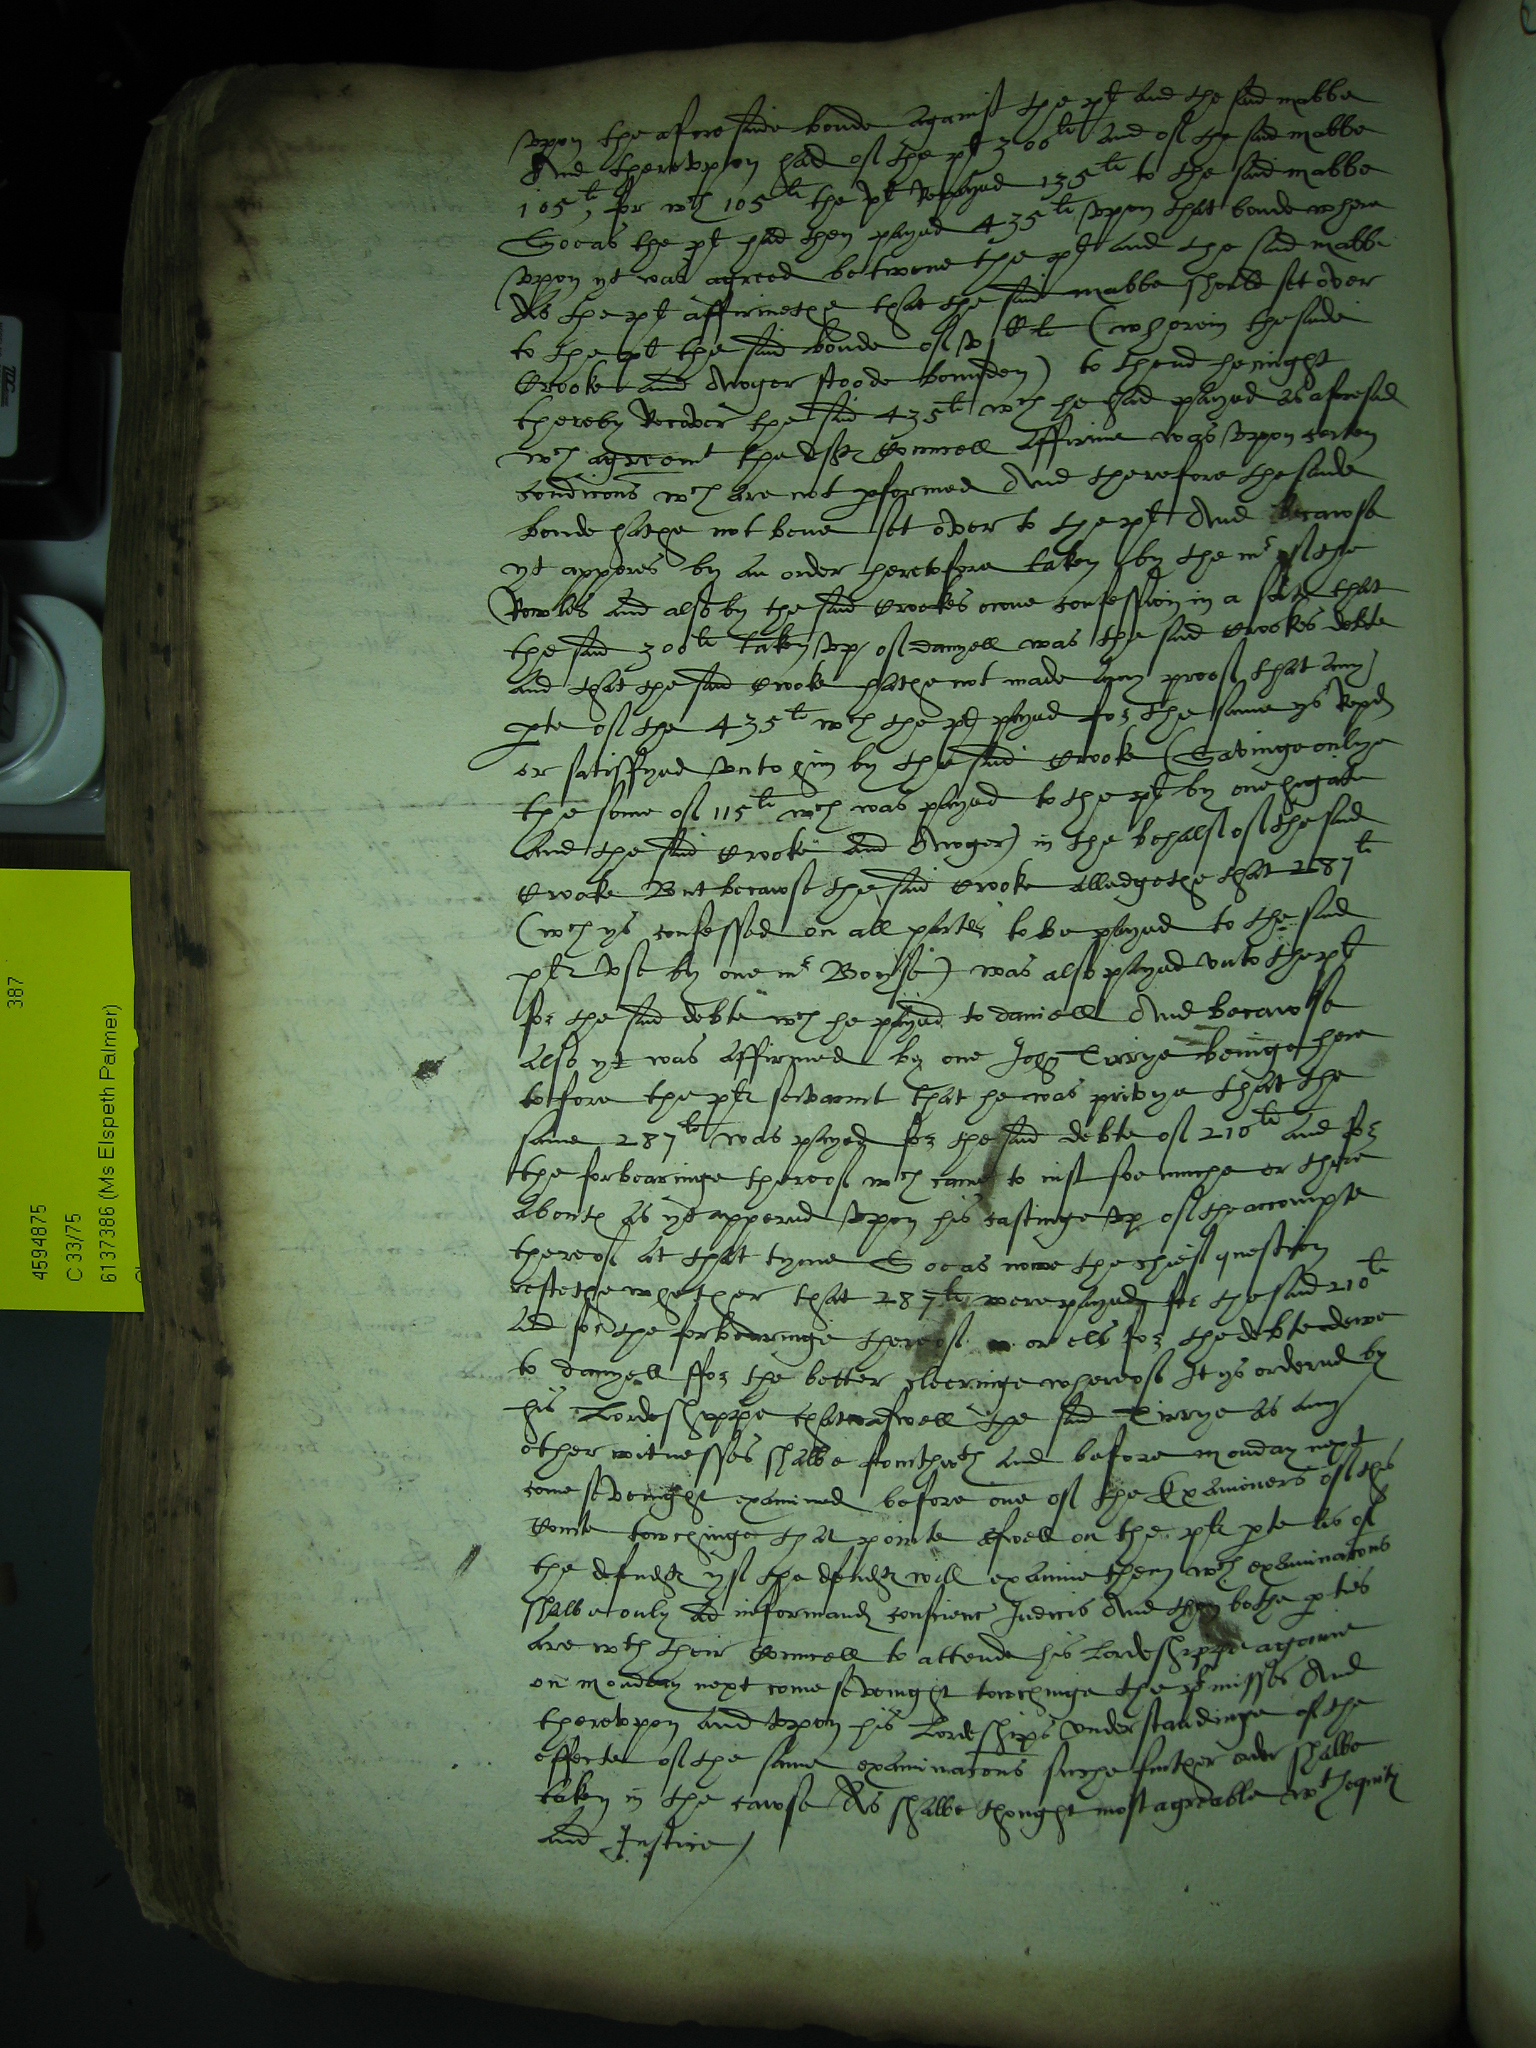 vpon the aforesaide bonde against the plt and the said mabbe
And therevpon had of the plt 300li and of the said mabbe
105li, for wch 105li the plt Repayed 135li to the said mabbe
So as the plt had then payed 435li vpon that bonde where
vpon yt was agreed betwene the plt and the said mabbe
As the plt affirmethe that the said mabbe should set over
to the plt the said bonde of vcli (wherein the saide
Crooke and Awger stoode bounden) to thend he might
thereby Recover the said 435li wch he had payed as aforesaid
wch agreemt the defts Councell affirme was vpon certen
condicons wch are not pformed And therefore the saide
bonde hathe not bene set over to the plt And becawse
yt apperes by an order heretofore taken by the mr of the
Rowles and also by the said Crookes owne confession in a that
the said 300li taken vp of danyell was the said Crookes debte
and that the said Crooke hathe not made any proof that any
pte of the 435li wch the plt payed for the same ys Repd
or satisfyed vnto him by the said Crooke (Savinge onlye
the some of 115li wch was payed to the plt by one higate
and the said Crooke and Awger) in the behalf of the said
Crooke But becawse the said Crooke alledgethe that 287li
(wch ys confessed on all partes to be payed to the said
plts vse by one mr Bowse) was also payed vnto the plt
for the said debte wch he payed to daniell And becawse
also yt was affirmed by one John Tirrye beinge here
tofore the plts servaunt that he was privye that the
same 287li was payed for the said debte of 210li and for
the forbearinge thereof wch came to iust soe muche or there
abouts as yt appered vpon his castinge vp of the accompte
thereof at that tyme So as nowe the chief question
restethe whether that 287li were payed for the said 210li
and for the forbearinge thereof or els for the debte dewe
to danyell ffor the better cleeringe whereof It ys ordered by
his Lordeshippe that aswell the said Tirrye as any
other witnesses shalbe fourthwth and before monday next
come sevenight examined before one of the Examiners of this
Courte towchinge that pointe aswell on the plts pte as of
the defendts yf the defendts will examine them wch examinacons
shalbe only ad informand conscienc Judicis And then bothe pties
are wth their Councell to attende his Lordeshippe againe
on monday next come sevenight towchinge the pmisses And
therevpon and vpon his Lordeships vnderstandinge of the
effecte of the same examinacons suche further order shalbe
taken in the cawse As shalbe thought most agreable wth equity
and Justice /
387
4594875
C 33/75
6137386 (Ms Elspeth Palmer)